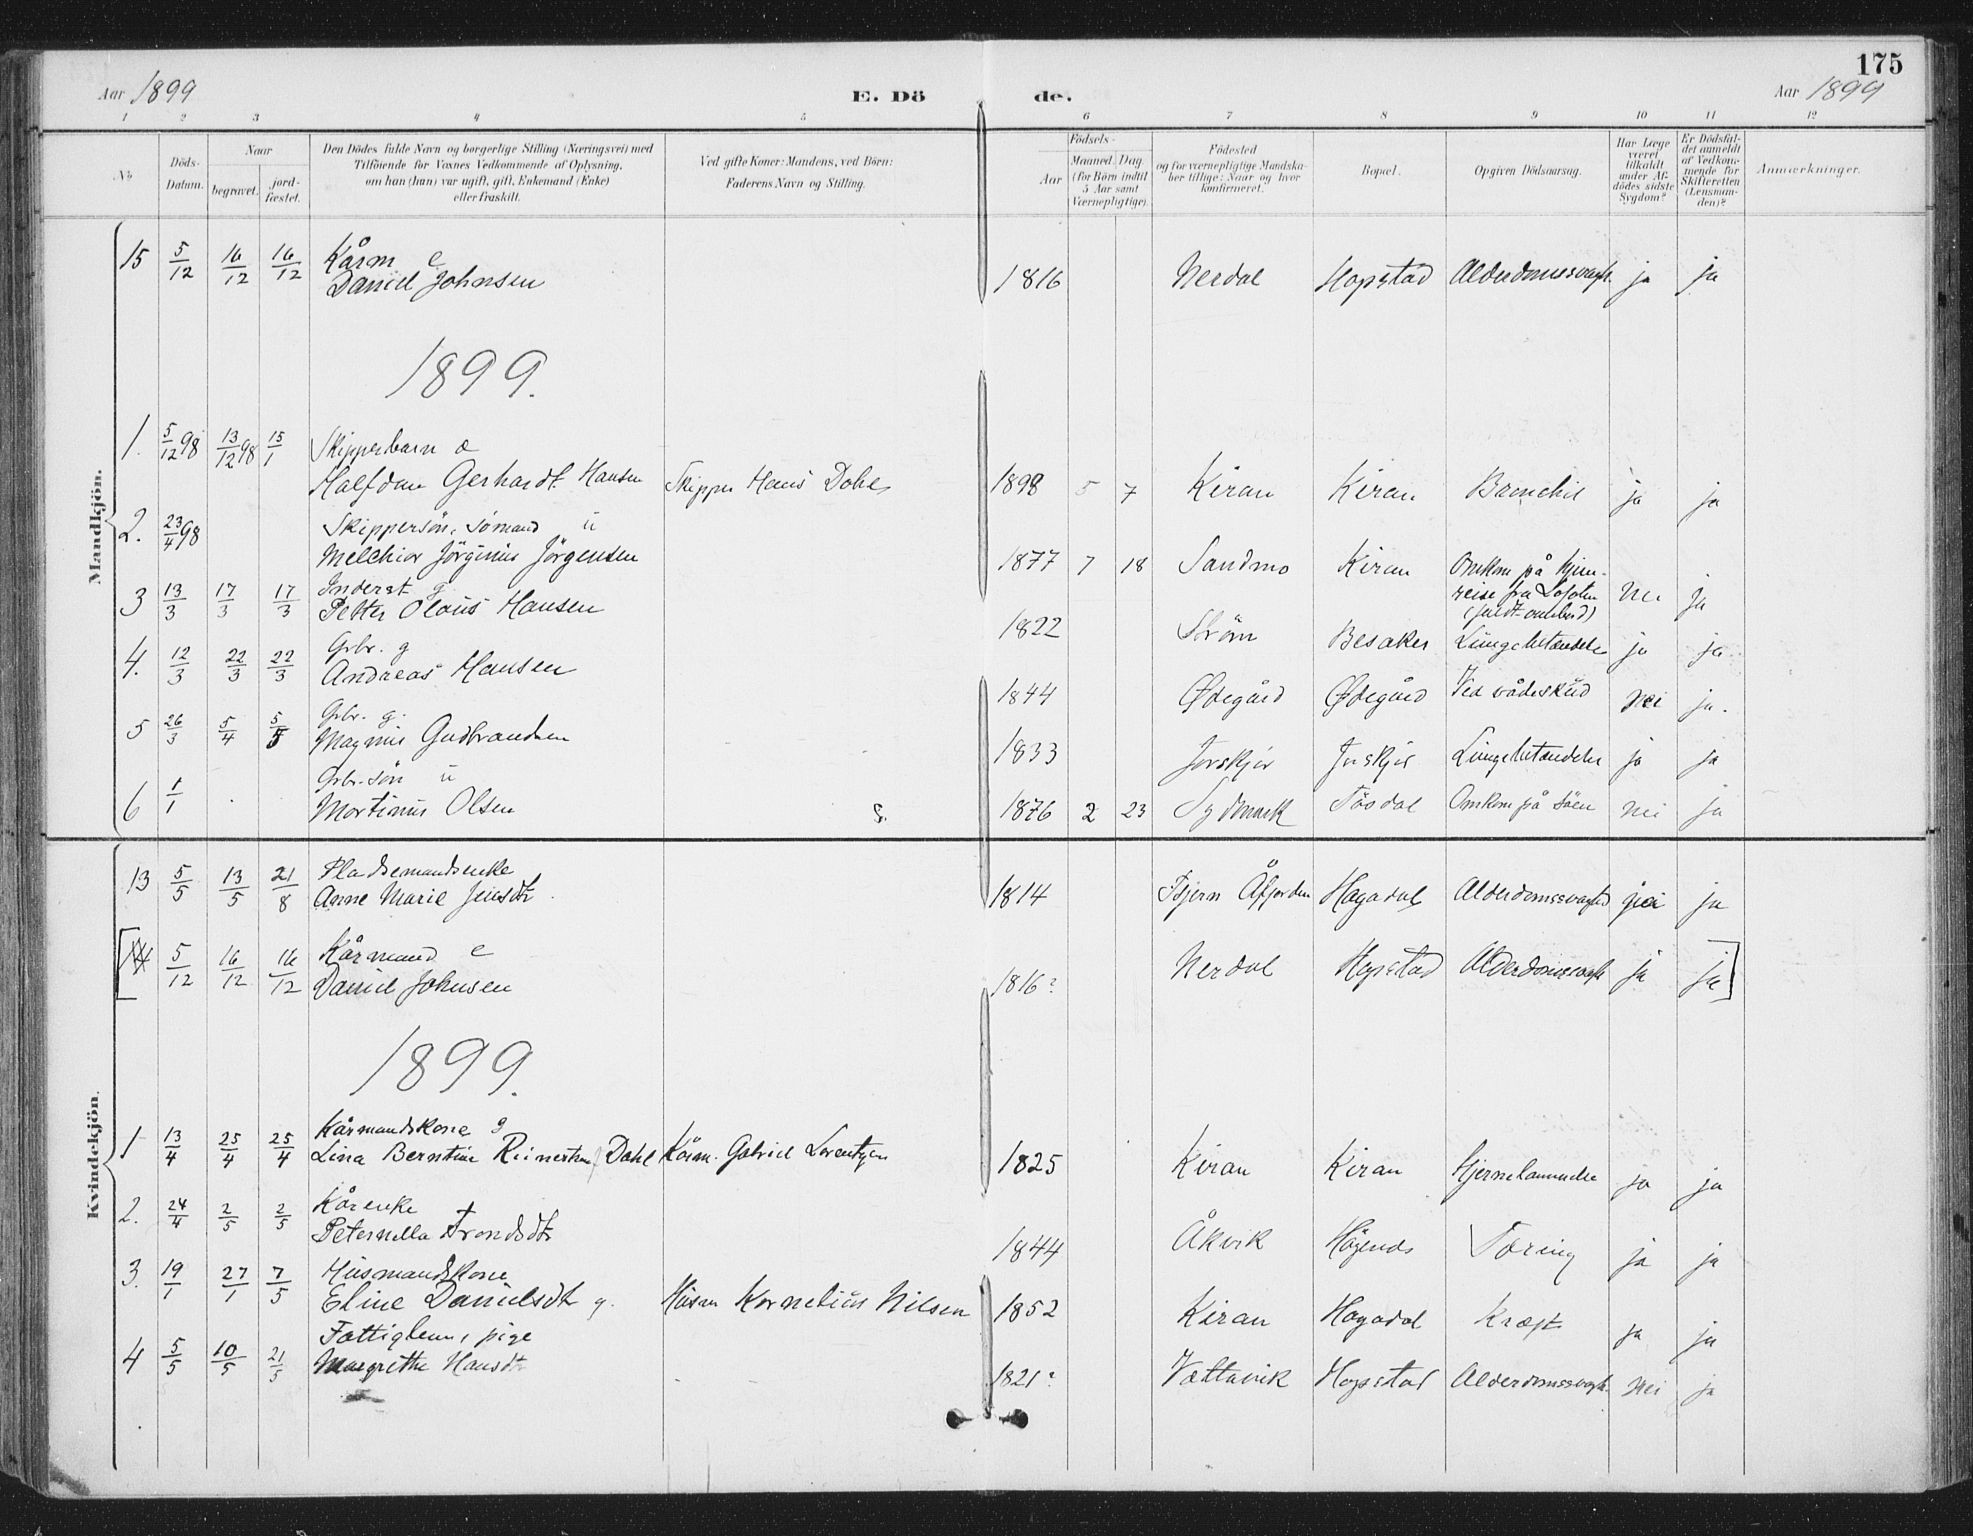 175
Aar 1899
E. Dö de.
Aar 1899
1 2 3 4 5 6 7 8 9 10 11 12
No.
Döds-Datum.
Naar
begravet.
jord-fæstet.
Den Dödes fulde Navn og borgerlige Stilling (Næringsvei) med
Tilföiende for Voxnes Vedkommende af Oplysning,
om han (hun) var ugift, gift, Enkemand (Enke)
eller fraskilt.
Ved gifte Koner: Mandens, ved Börn:
Faderens Navn og Stilling.
Födsels-
Aar
Maaned. Dag.
(for Börn indtil
5 Aar samt
Værnepligtige).
Födested
og for værnepligtige Mandska-
ber tillige: Naar og hvor
konfirmeret.
Bopæl.
Opgiven Dödsaarsag.
Har Læge
været
tilkaldt
under Af-
dödes sidste
Sygdom?
Er Dödsfal-
det anmeldt
af Vedkom-
mende for
Skifteretten
(Lensman-
den)?
Anmærkninger.
Mandkjön.
15 5/12 16/12 16/12 Kårm e
Daniel Johnsen 1816 Nerdal Hopstad Alderdomssvagh. ja ja
1899.
1. 5/12 98 13/12 98 15/1 Skipperbarn
Halfdan Gerhardt Hansen Skipper Hans Dahl 1898 5 7 Kiran Kiran ja ja
2. 23/4 98 Skippersön, Sömand u
Melchior Jörginus Jörgensen 1877 7 18 Sandmo Kiran Omkom på hjem-
reise fra Lofoten nei ja
3 13/3 17/3 17/3 Inderst g
Petter Olaus Hansen 1822 Ström Besaker Lungebetændelse ja ja
4. 12/3 22/3 22/3 Gbr. g
Andreas Hansen 1844 Ødegård Ødegård Ved vådeskud nei ja.
5 26/3 5/4 5/5 Gbr. g.
Magnus Gudbrandsen 1833 Jorskjör Jorskjör Lungebetændelse ja ja
6 1/1 Gbr. sön u
Martinus Olsen 1876 2 23 Sydmark Omkom på söen nei ja
Kvindekjön.
13 5/5 13/5 21/8 Pladsemandsenke
Anne Marie Jensdtr. 1814 Åfjorden Hagadal Alderdomssvaghed ja
[14 5/12 16/12 16/12 Kårmand e
Daniel Johnsen 1816? Nerdal Hopstad Alderdomssvagh ja ja]
1899.
1 13/4 25/4 25/4 Kårmandskone g
Lina Berntine Reinertsen f Dahl Kårm. Gabriel Lorentzen 1825 Kiran Kiran Hjernelammelse ja ja
2. 24/4 2/5 2/5 Kårenke
Peternella Trondsdtr 1844 Åkvik Tæring ja ja
3. 19/1 27/1 7/5 Husmandskone
Eline Danielsdtr g. Husm Kornelius Nilsen 1852 Kiran Hagadal Kræft ja ja
4 5/5 10/5 21/5 Fattiglem, pige
Margrethe Hansdtr 1821? Vættavik Hopstad Alderdomssvagh. nei ja